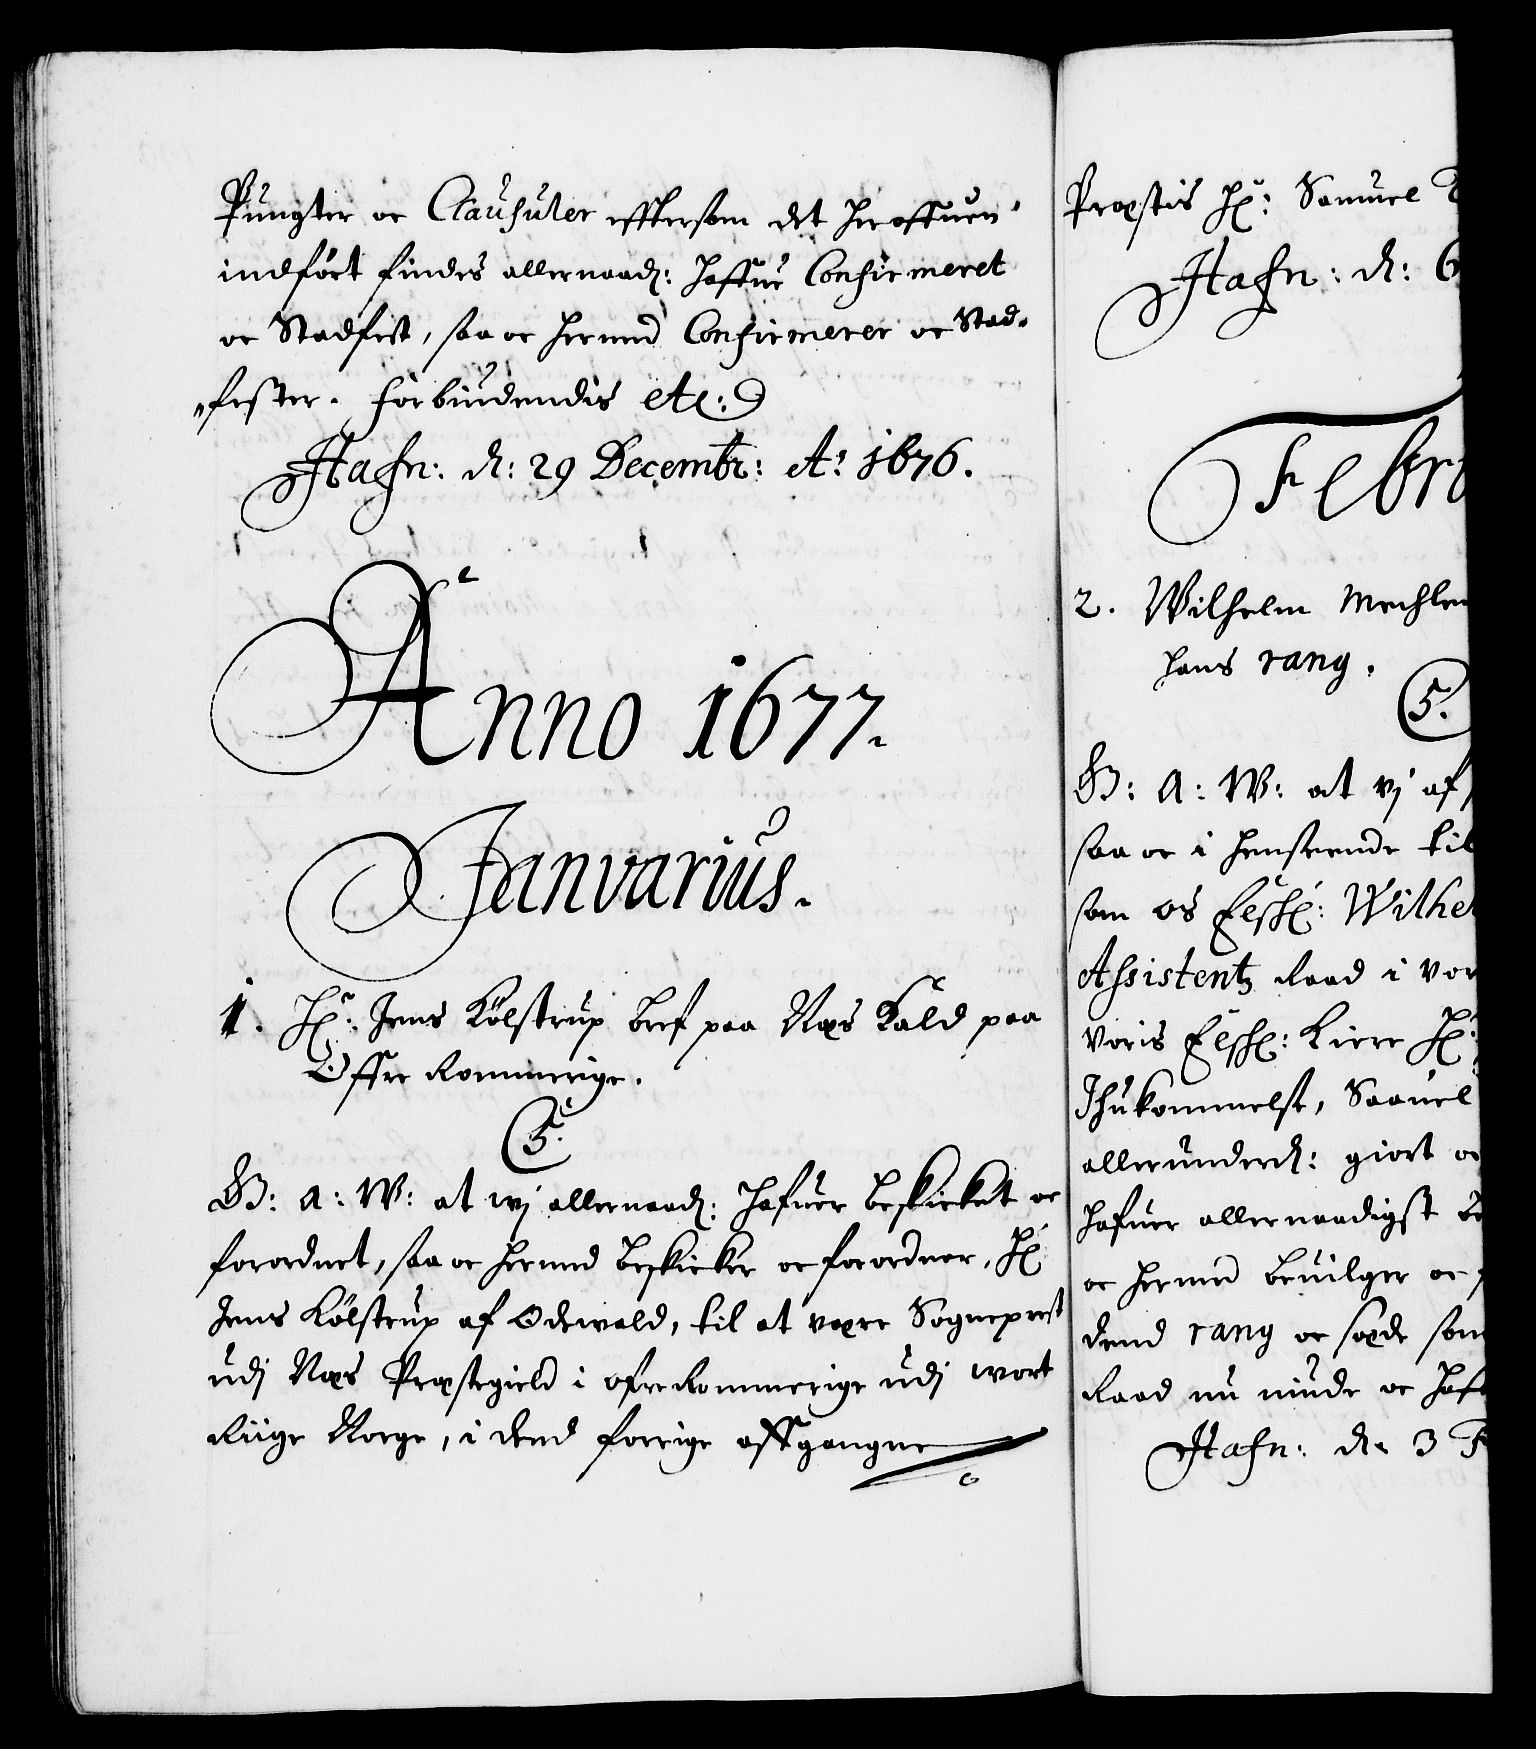 Pungter oc Clausuler efftersom det heroffuen
indfört findes allernaad: haffue Confirmeret
oc Stadfest, saa oc hermed Confirmerer oc Stad-
fester. Forbiudendis etc:
Hafn: d: 29 Decembr: Ao 1676.
Anno 1677.
Januarius.
1. Hr: Jens Kölstrup bref paa Næs Kald paa
Öffre Rommerige.
C5.
G: A: W: at wj allernaad: hafuer beskicket oc
forordnet, saa oc hermed beskicker oc forordner, Hr
Jens Kölstrup af Odewald, til at være Sogneprest
udj Næs Præstegield i ofre Rommerige udj wort
Riige Norge, i dend forrige affgangne
Præstis Hr: Samuel
Hafn: d: 6
Febr
2. Wilhelm Mechlen
hans rang.
C5.
G: A: W: at vj af
saa oc i henseende til
som os Elskl: Wilhe
Assistentz Raad i vor
voris Elskl: kiere Hr:
Ihukommelse, Saauel
allerunderd: giort oc
hafuer allernaadigst be
oc hermed beuilger oc
dend rang oc sæde som
Raad nu niude oc haf
Hafn: d: 3 F